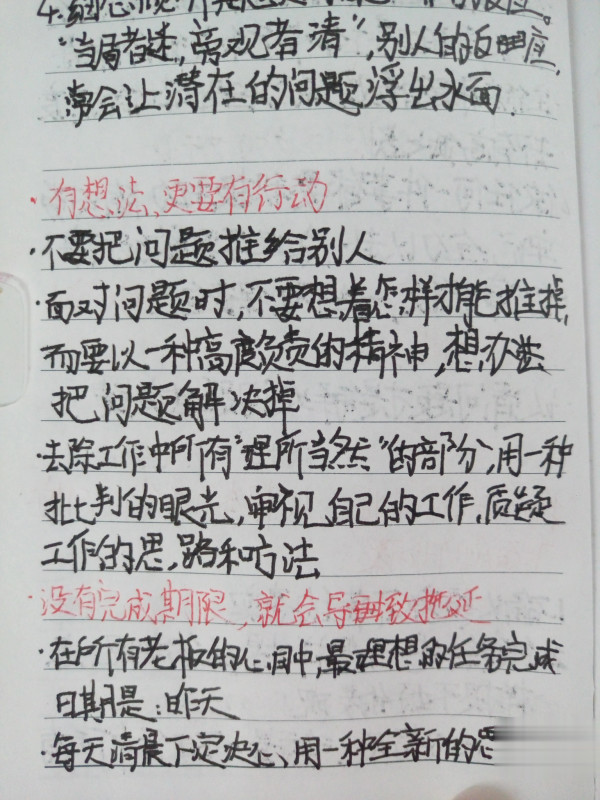 "当局者迷,旁观者清",别人的反应,
常会让潜在的问题浮出水面.
·有想法、更要有行动
·不要把问题推给别人
·面对问题时,不要想着怎样才能推掉,
而要以一种高度负责的精神,想办法
把问题解决掉
·去除工作中所有"理所当然"的部分,用一种
批判的眼光,审视自己的工作.质疑
工作的思路和方法
·没有完成期限,就会导致拖延
·在所有老板的心目中,最理想的任务完成
日期是:昨天
·每天清晨下定决心、用一种全新的思